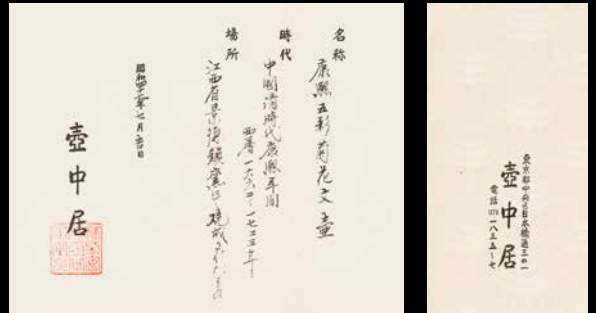 名称
康熙五彩菊花文壷
時代
中國清時代康熙年間
西暦一六六二–一七二三年
場所
江西省景徳鎮窯にて焼成されたもの
壺中居
東京都中央区日本橋通三の一
壺中居
電話 一八三五〜七